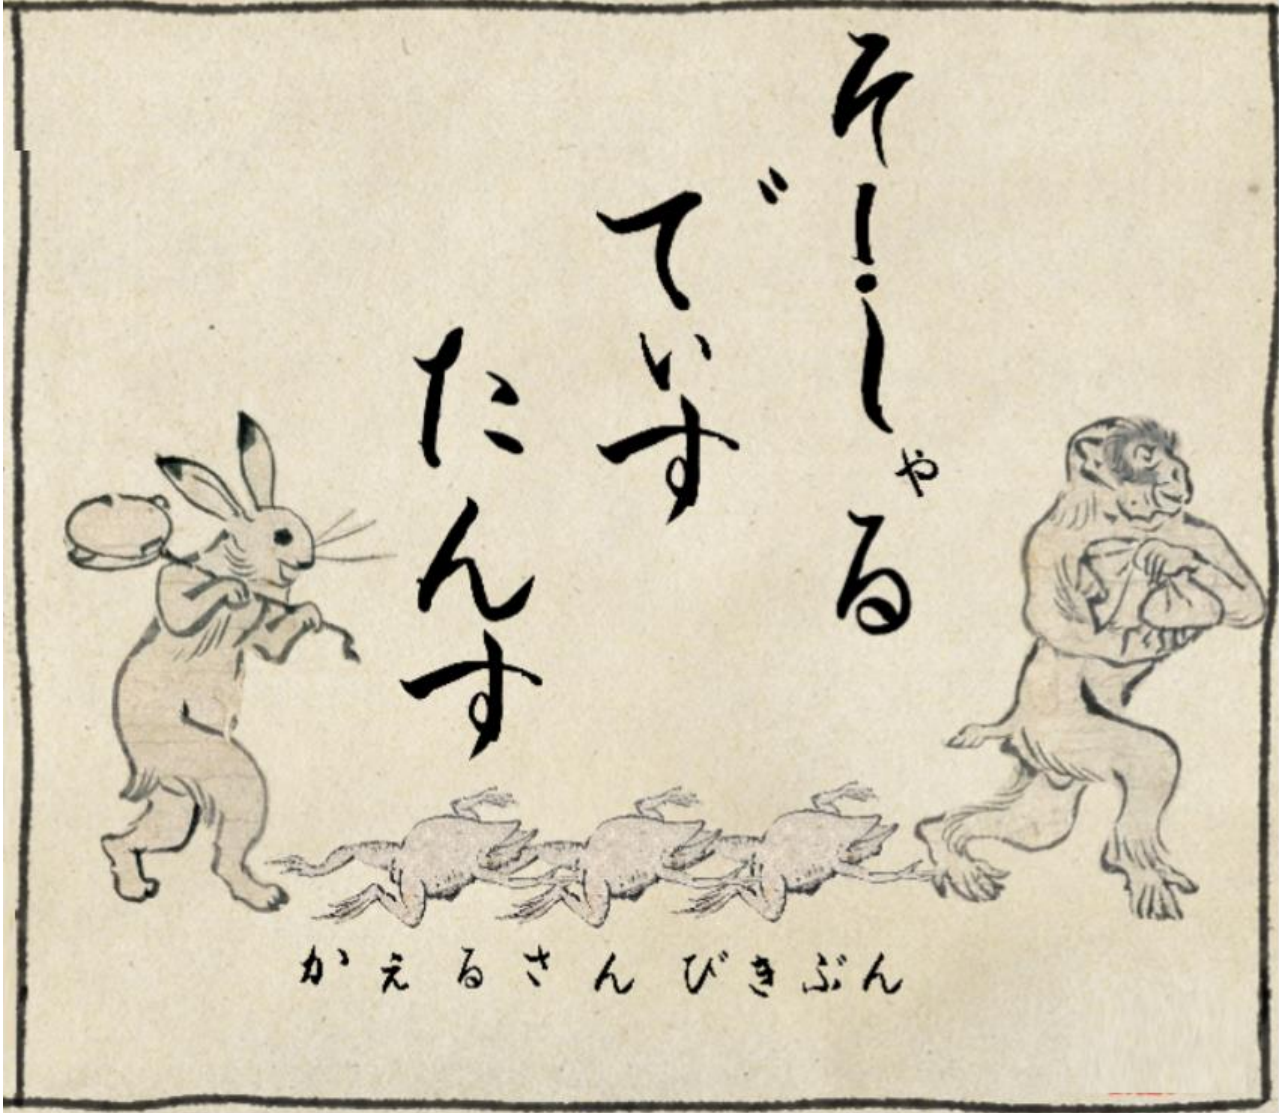 そ！しゃる
でぃす
たんす
かえるさんびきぶん